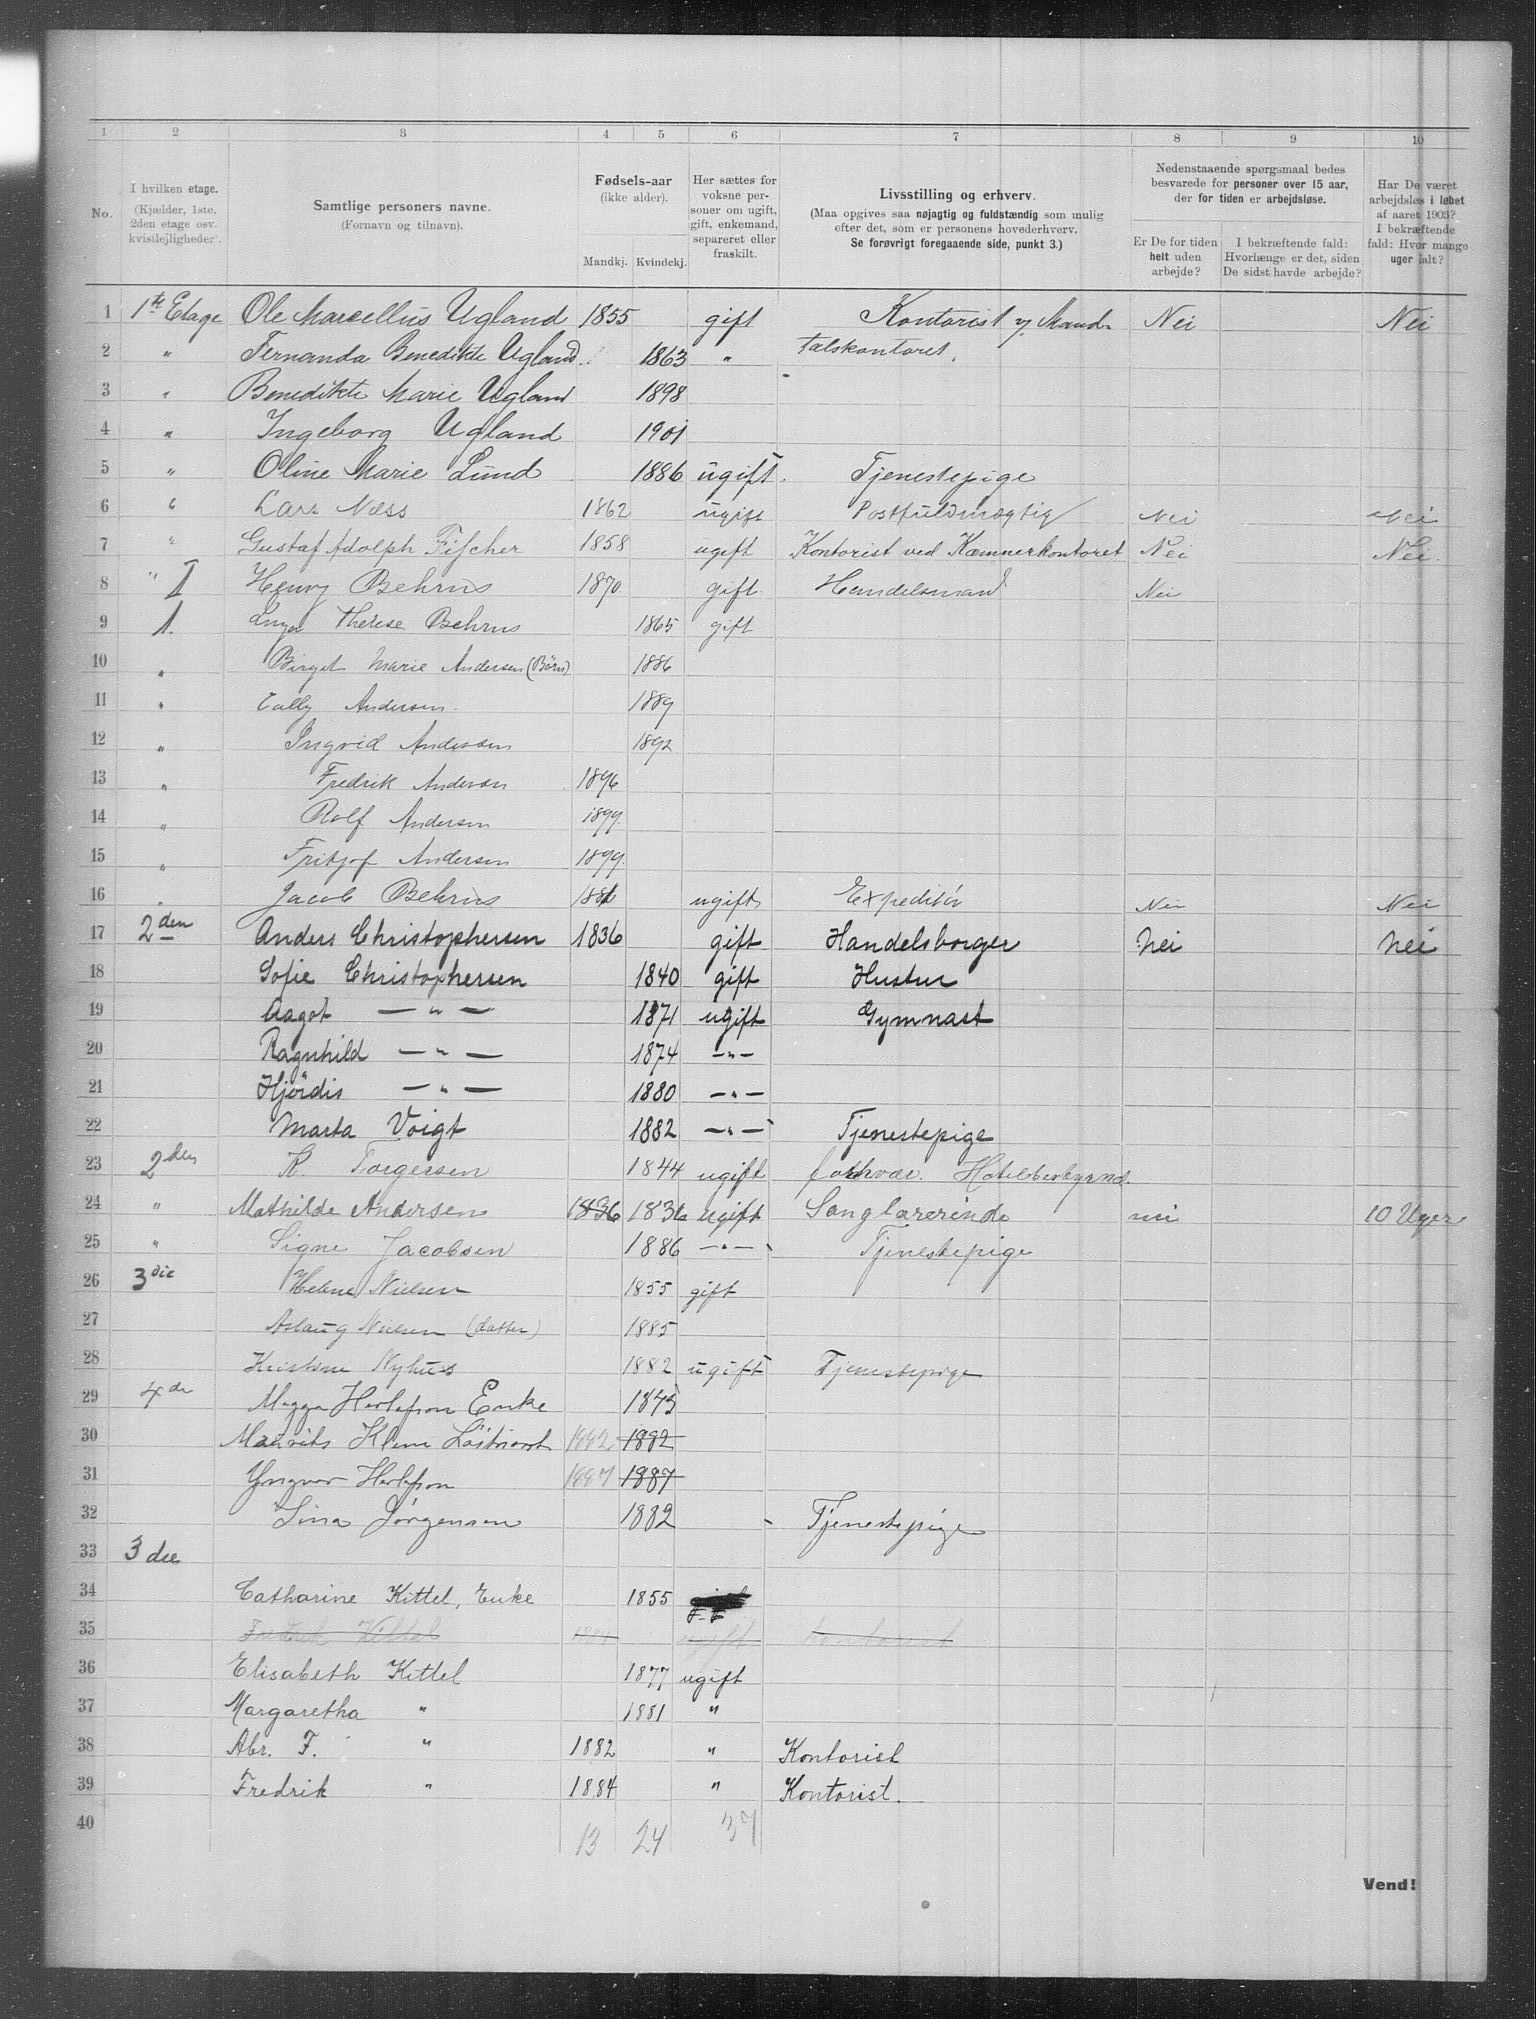 1 2 3 4 5 6 7 8 9 10
No.
I hvilken etage.
(Kjælder, 1ste, 2den etage osv. kvistlejligheder).
Samtlige personers navne.
(Fornavn og tilnavn).
Fødsels-aar
(ikke alder).
Mandkj. Kvindekj.
Her sættes for voksne personer om ugift, gift, enkemand, separeret eller fraskilt.
Livsstilling og erhverv.
(Maa opgives saa nøjagtig og fuldstændig som mulig efter det, som er personens hovederhverv.
Se forøvrigt foregaaende side, punkt 3.)
Nedenstaaende spørgsmaal bedes besvarede for personer over 15 aar, der for tiden er arbejdsløse.
Er De for tiden helt uden arbejde?
I bekræftende fald: Hvorlænge er det, siden De sidst havde arbejde?
Har De været arbejdsløs i løbet af aaret 1903? I bekræftende fald: Hvor mange uger ialt?
1 1ste Etage Ole Marcellus Ugland 1855 gift Kontorist v/ Mand- Nei Nei
2 " Fernanda Benedikte Ugland. 1863 " talskontoret.
3 " Benedikte Marie Ugland 1898
4 " Ingeborg Ugland 1901
5 " Oline Marie Lund 1886 ugift. Tjenestepige
6 " Lars Næss 1862 ugift Postfuldmægtig Nei Nei
7 " Gustaf Adolph Fischer 1858 ugift Kontorist ved Kæmnerkontoret Nei Nei.
8 " I Henry Behrns 1870. gift. Handelsmand Nei
9 1. Inga Therese Behrns 1865 gift
10 " Birget Marie Andersen (Børn) 1886
11 " Cally Andersen. 1889
12 " Ingrid Andersen 1892
13 " Fredrik Andersen 1896
14 " Rolf Andersen 1899.
15 " Fritjof Andersen 1899.
16 " Jacob Behrns ugift Expeditør Nei Nei
17 2den Anders Christophersen 1836 gift Handelsborger Nei Nei
18 Sofie Christophersen 1840 gift Hustru
19 Aagot — " — 1871 ugift Gymnast
20 Ragnhild — " — 1874 — " —
21 Hjørdis — " — 1880 — " —
22 Marta Voigt 1882 — " — Tjenestepige
23 2den K Torgersen 1844 ugift
24 " Mathilde Andersen 1836 1836 ugift Sanglærerinde nei 10 Uger
25 " Signe Jacobsen 1886 — " — Tjenestepige
26 3die Helene Nielsen 1855 gift
27 Aslaug Nielsen (datter) 1885
28 Kristine Nyhus 1882 ugift Tjenestepige
29 4de Magga Herlofson Enke 1845
30 1882 1882
31 Yngvar Herlofson 1887 1887
32 Lina Jørgensen 1882 Tjenestepige
33 3die
34 Catharine Kittel, Enke 1855
35 Fredrik Kittel 1884 ugift Kontorist
36 Elisabeth Kittel 1877 ugift
37 Margaretha " 1881 "
38 Abr. F. " 1882 " Kontorist
39 Fredrik " 1884 " Kontorist.
40 13 24 37
Vend!